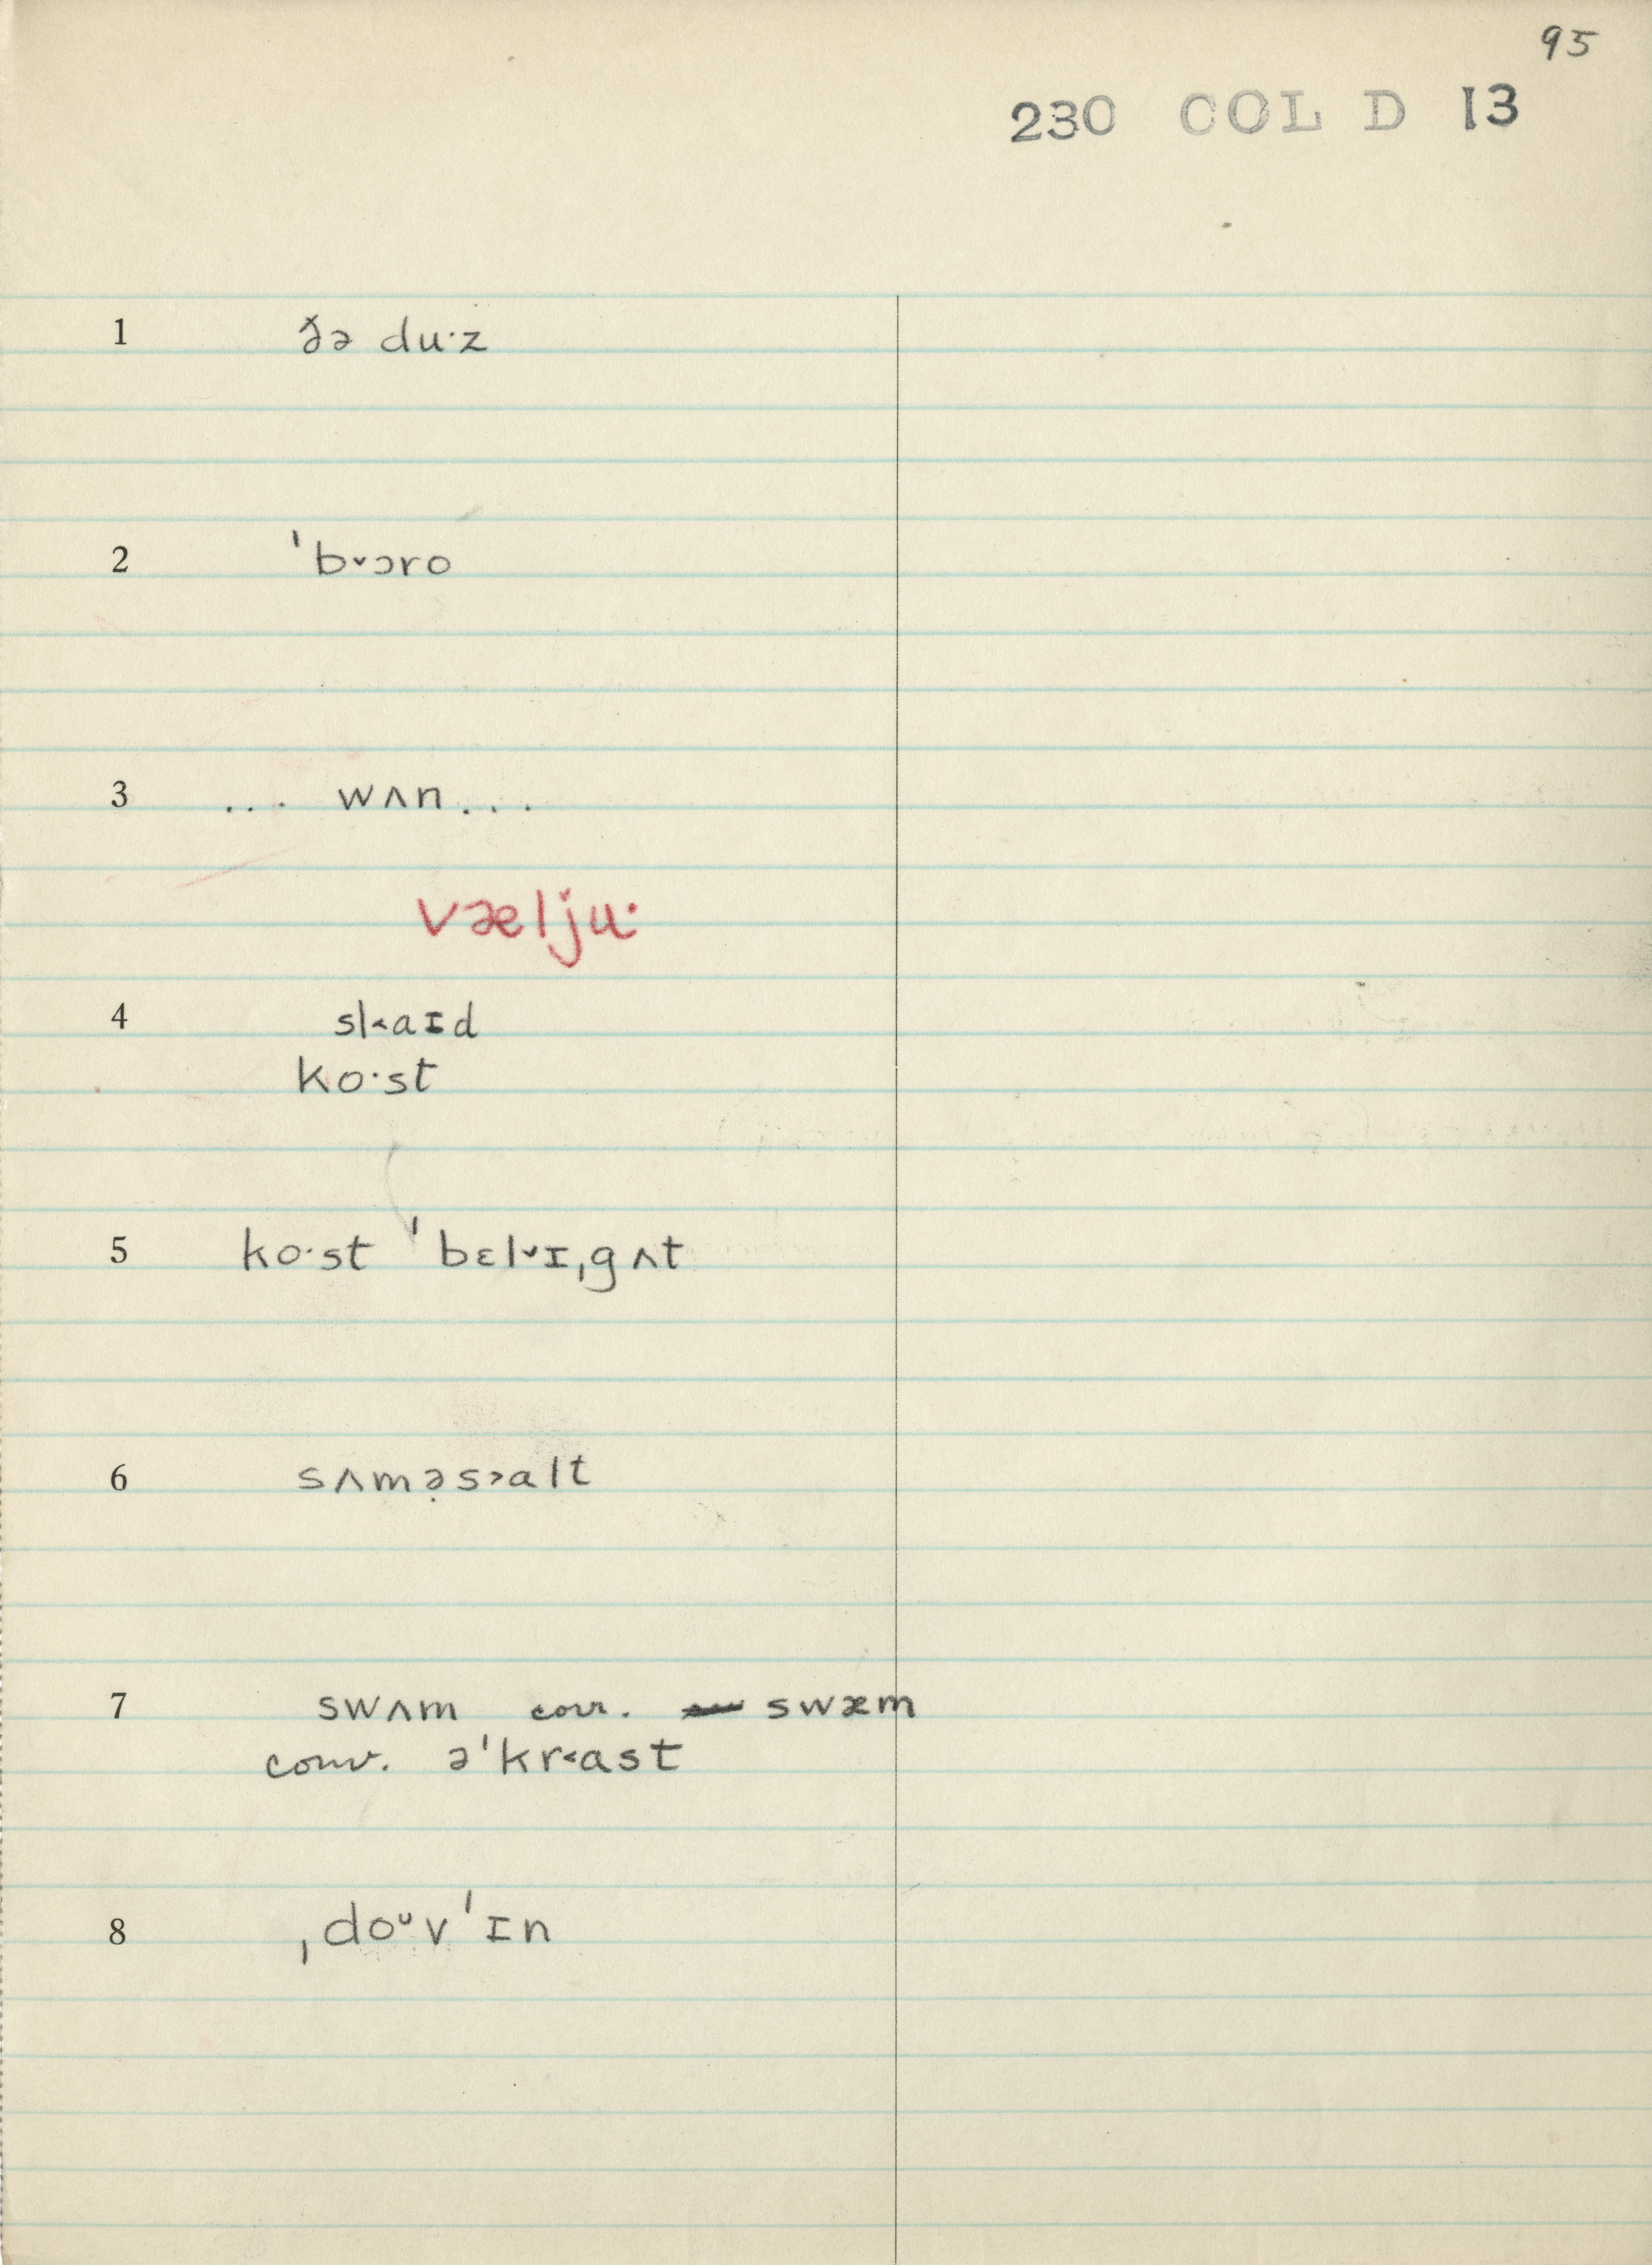 95
230 COL D 13
1 ðə duˑz
2 ˈb˅ɔro
3 ... wʌn...
væljuˑ
4 sl˂aɪd
koˑst
5 koˑst ˈbɛl˅ɪˌgʌt
6 sʌmə̣s˃alt
7 swʌm corr. swæm
conv. əˈkr˂ast
8 ˌdoᵘvˈɪn